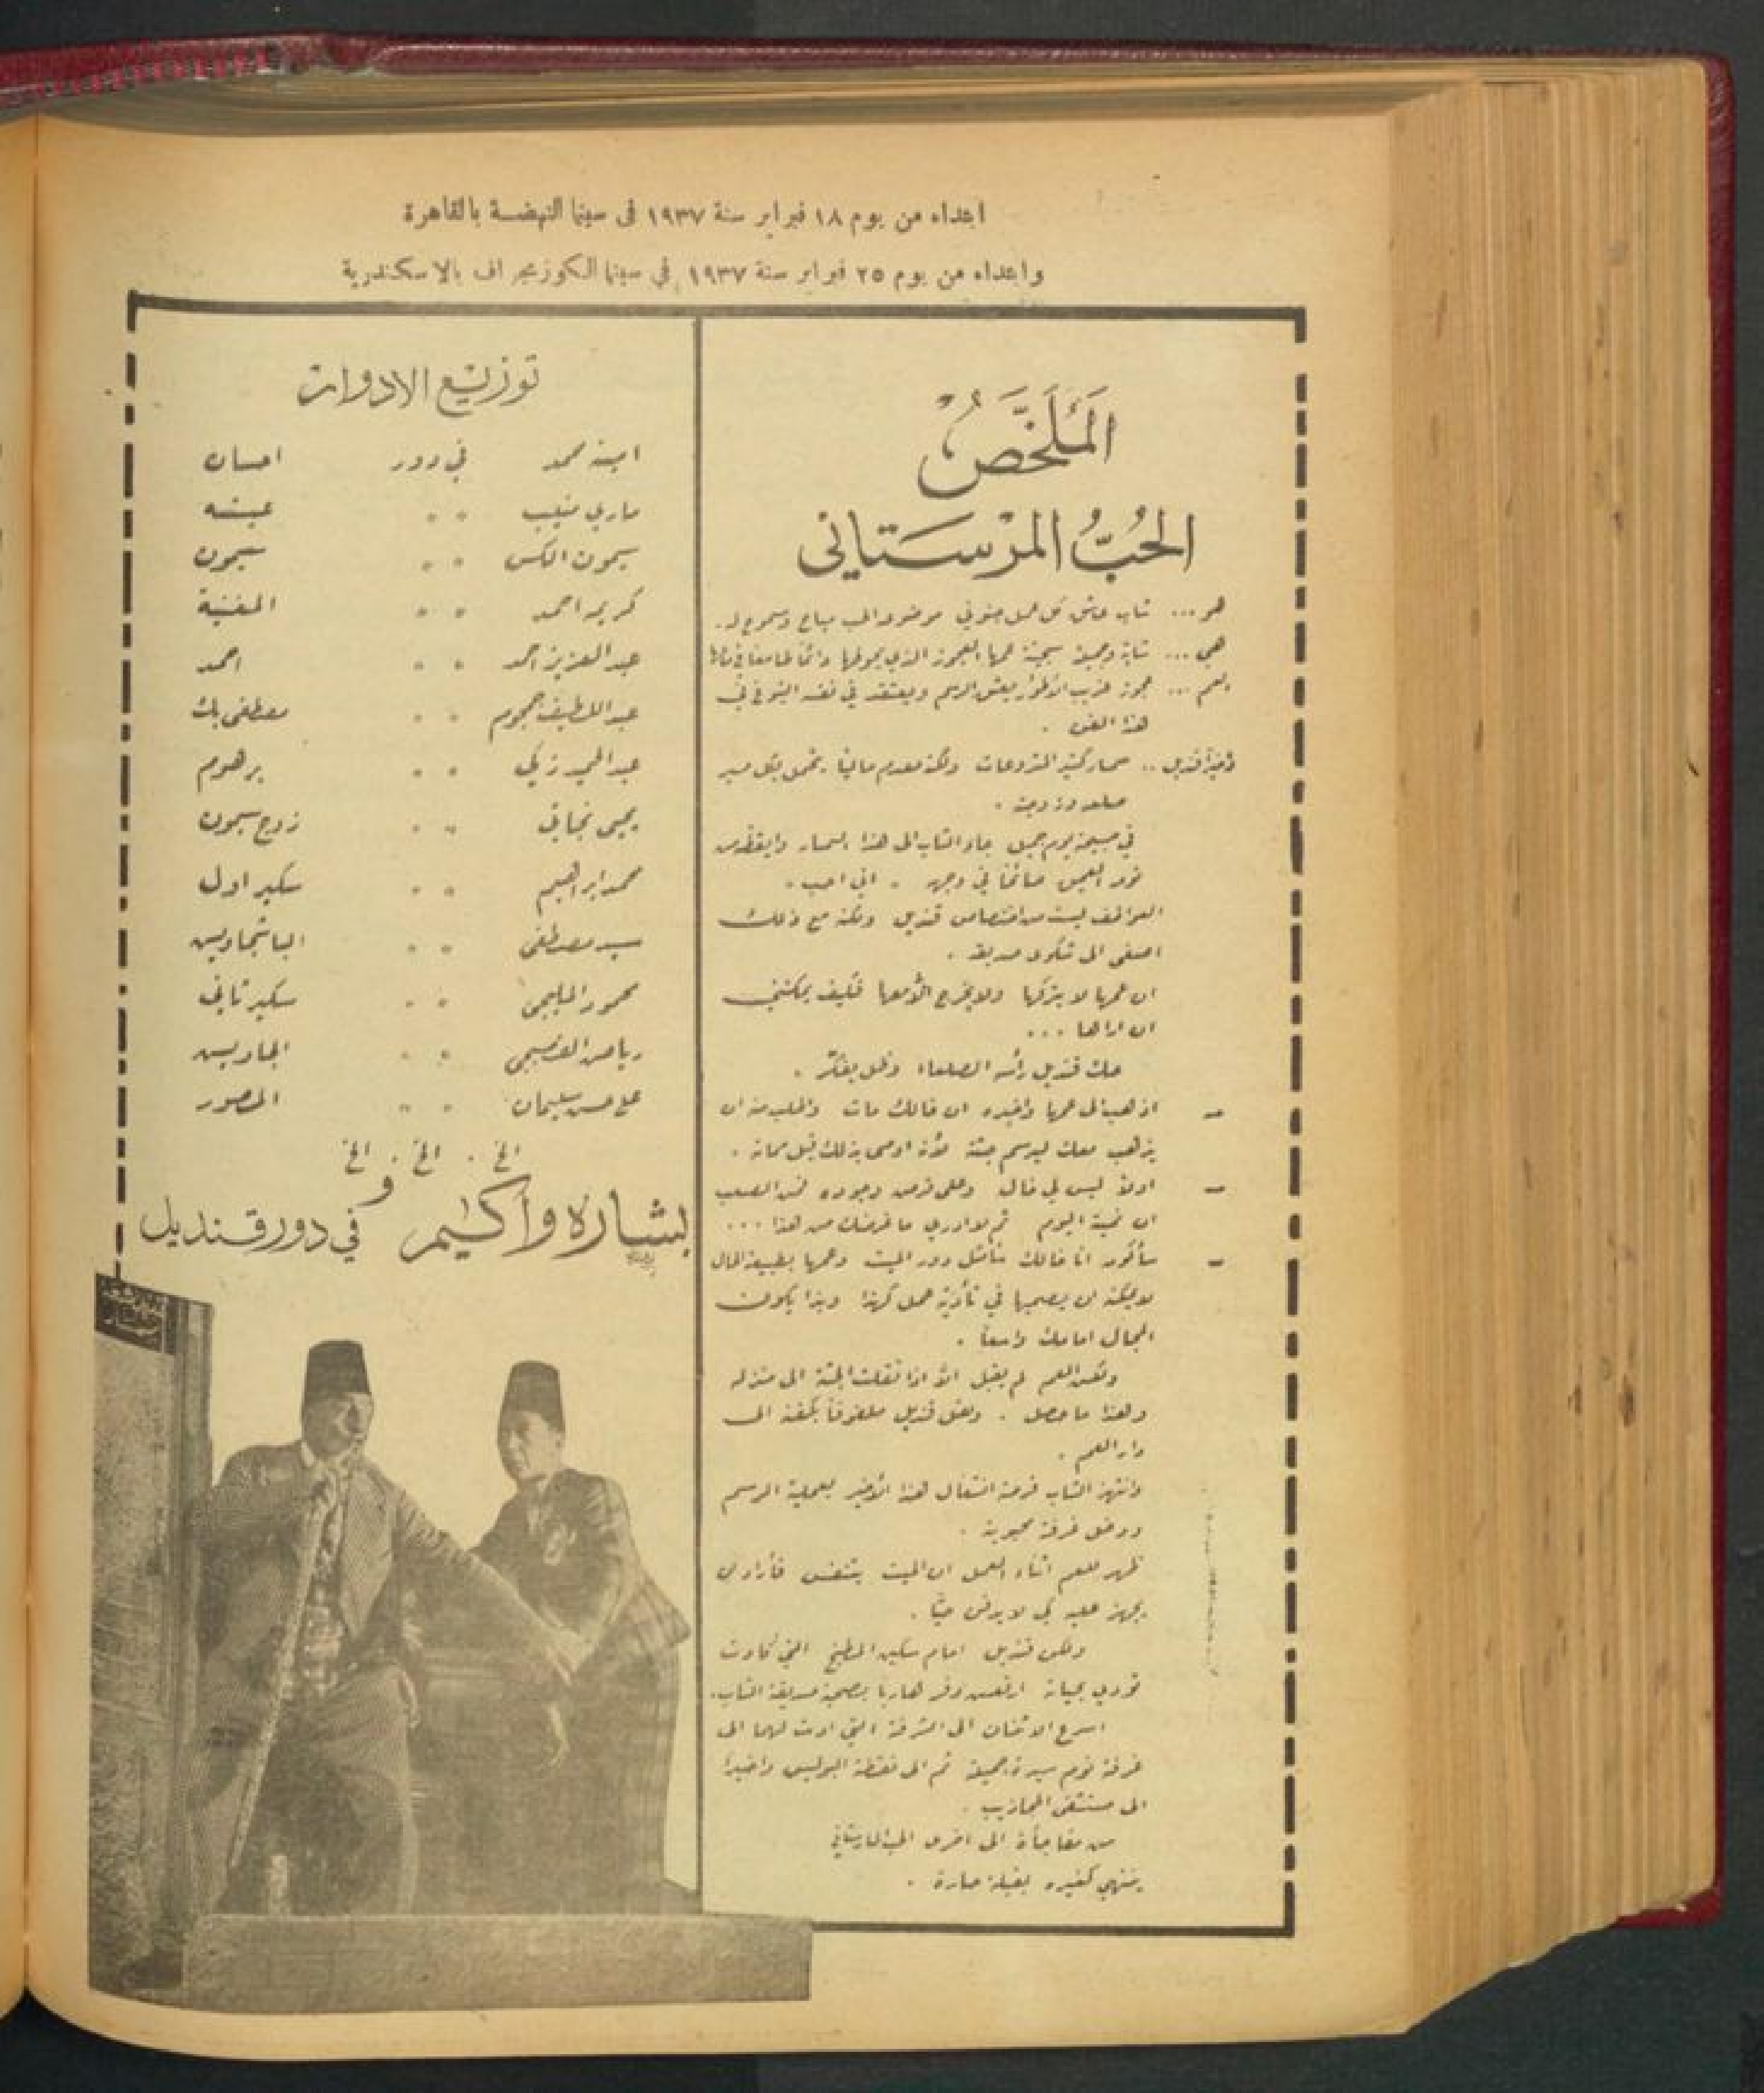 ابتداء من يوم ١٨ فبراير سنة ١٩٣٧ فى سينما النهضة بالقاهرة
وابتداء من يوم ٢٥ فبراير سنة ١٩٣٧ في سينما الكوزمجراف بالاسكندرية
المُلَخَّصُ
الحُبُّ المرْسَتاني
هو ... شاب عاشق كل عمل جنوني موضوعه الحب مباح ومسموح له.
هي ... شابة وجميلة سجينة عمها العجوز الذي يحولها دائما
العم ... عجوز غريب الأطوار يعشق الرسم ويعتقد في نفسه النبوغ في
هذا الفن .
وأخيراً قنديل .. سمسار كثير المشروعات ولكنه معدم ماليا . يتحمل بكل صبر
صلعه وزوجته .
في صبيحة يوم جميل جاء الشاب الى هذا السمسار وايقظه من
نومه العميق صائحاً في وجهه . اني احب .
العواطف ليست من اختصاص قنديل ولكنه مع ذلك
اصغى الى شكوى صديقه .
ان عمها لا يتركها ولا تخرج الا معها فكيف يمكنني
ان اراها ...
حك قنديل رأسه الصلعاء وظل يفكر .
– اذهب الى عمها واخبره ان خالك مات واطلب منه ان
يذهب معك ليرسم جثته لأنه اوصى بذلك قبل مماته .
– اولا ليس لي خال وعلى فرض وجوده فمن الصعب
ان نميته اليوم ثم لا ادري ما غرضك من هذا ...
– سأكون انا خالك سأمثل دور الميت وعمها بطبيعة الحال
لا يمكنه ان يصحبها في تأدية عمل كهذا وبذا يكون
المجال امامك واسعاً .
ولكن العم لم يقبل الا اذا نقلت الجثة الى منزله
وهذا ما حصل . ونقل قنديل ملفوفاً بكفنه الى
دار العم .
وانتهز الشاب فرصة انشغال هذا الأخير بعملية الرسم
ودخل غرفة محبوبته .
ظهر للعم اثناء العمل ان الميت يتنفس فأراد ان
يجهز عليه كي لا يدفن حيّا .
ولكن قنديل امام سكين المطبخ التي كادت
تودي بحياته ارتعش وفر هاربا بصحبة صديقه الشاب.
اسرع الاثنان الى الشرفة التي ادت لهما الى
غرفة نوم سيدة جميلة ثم الى نقطة البوليس واخيرا
الى مستشفى المجاذيب .
من مفاجأة الى اخرى الحب المارستاني
ينتهي كغيره بقبلة حارة .
توزيع الادوار
امينة محمد في دور احسان
ماري منيب " " عيشه
سيمون الكس " " سيمون
كريمه احمد " " المغنية
عبد العزيز احمد " " احمد
عبد اللطيف جمجوم " " مصطفى بك
عبد الحميد زكي " " برهوم
يحيى نجاتي " " زوج سيمون
محمد ابراهيم " " سكير اول
سيد مصطفى " " الباشجاويش
محمود المليجى " " سكير ثاني
رياض القصبجي " " الجاويش
علي حسن سليمان " " المصور
الخ . الخ . الخ
و
بشاره واكيم في دور قنديل